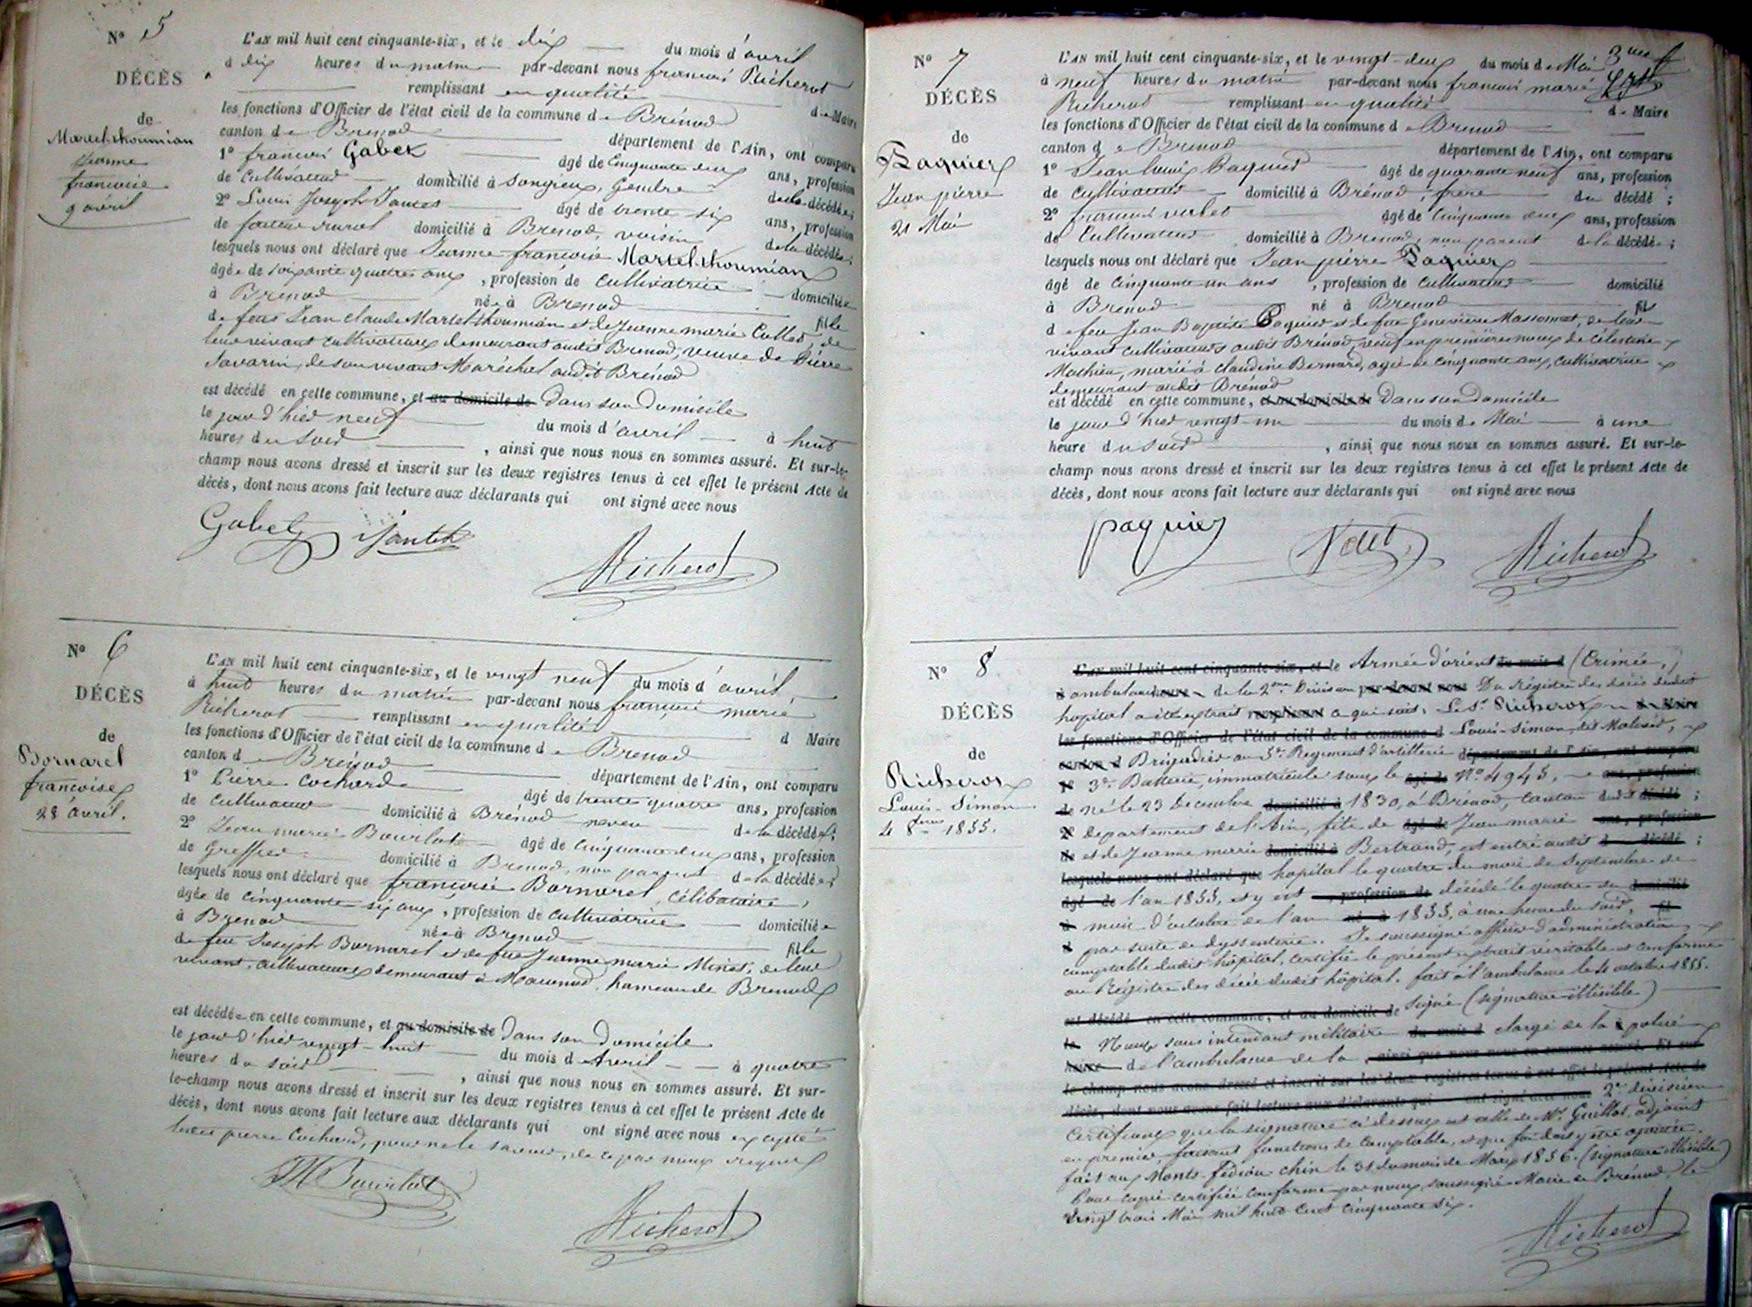 Nº 5
DÉCÈS
de
Martel-thoumian
Jeanne
francoise
9 avril
L'AN mil huit cent cinquante-six, et le dix du mois d'avril
à dix heures du matin par-devant nous francois Richerot
remplissant en qualité de Maire
les fonctions d'Officier de l'état civil de la commune de Brénod
canton de Brenod département de l'Ain, ont comparu
1º francois Gabet âgé de cinquante deux ans, profession
de cultivateur domicilié à Songieux, Gendre de la décédée;
2º Louis Joseph âgé de trente six ans, profession
de facteur rural domicilié à Brenod, voisin de la décédée;
lesquels nous ont déclaré que Jeanne francoise Martel-thoumian
âgée de soixante quatre ans, profession de cultivatrice domiciliée
à Brenod née à Brenod fille
de feus Jean claude Martel-thoumian et de Jeanne marie Collet, de
leur vivant cultivateurs demeurant audit Brenod, veuve de Pierre
Savarin, de son vivant Maréchal audit Brénod
est décédé en cette commune, et au domicile de Dans son domicile
le jour d'hier neuf du mois d'avril à huit
heures du soir, ainsi que nous nous en sommes assuré. Et sur-le-
champ nous avons dressé et inscrit sur les deux registres tenus à cet effet le présent Acte de
décès, dont nous avons fait lecture aux déclarants qui ont signé avec nous
Gabet Richerot
Nº 6
DÉCÈS
de
Bornarel
francoise
28 avril.
L'AN mil huit cent cinquante-six, et le vingt neuf du mois d'avril
à huit heures du matin par-devant nous francois marie
Richerot remplissant en qualité d Maire
les fonctions d'Officier de l'état civil de la commune de Brenod
canton de Brenod département de l'Ain, ont comparu
1º Pierre Cochard âgé de trente quatre ans, profession
de cultivateur domicilié à Brénod neveu de la décédée;
2º Jean marie Bourlot âgé de cinquante deux ans, profession
de Greffier domicilié à Brenod, non parent de la décédée;
lesquels nous ont déclaré que francoise Bornarel, célibataire,
âgée de cinquante six ans, profession de cultivatrice domiciliée
à Brenod née à Brenod fille
de feu Joseph Bornarel et de feue Jeanne marie Minet, de leur
vivant, cultivateurs demeurant à hameau de Brenod
est décédée en cette commune, et au domicile de Dans son domicile
le jour d'hier vingt-huit du mois d'Avril à quatre
heures du soir, ainsi que nous nous en sommes assuré. Et sur-
le-champ nous avons dressé et inscrit sur les deux registres tenus à cet effet le présent Acte de
décès, dont nous avons fait lecture aux déclarants qui ont signé avec nous excepté
pierre Cochard, pour ne le savoir, de ce par nous requis
JM Bourlot
Richerot
Nº 7
DÉCÈS
de
Paquier
Jean pierre
21 Mai
L'AN mil huit cent cinquante-six, et le vingt-deux du mois de Mai
à neuf heures du matin par-devant nous francois marie
Richerot remplissant en qualité de Maire
les fonctions d'Officier de l'état civil de la commune de Brenod
canton de Brenod département de l'Ain, ont comparu
1º Jean Louis Paquier âgé de quarante neuf ans, profession
de cultivateur domicilié à Brénod, frere du décédé;
2º francois âgé de cinquante deux ans, profession
de Cultivateur domicilié à Brenod, non parent de la décédée;
lesquels nous ont déclaré que Jean pierre Paquier
âgé de cinquante un ans, profession de cultivateur domicilié
à Brenod né à Brenod fils
de feu Jean Baptiste Paquier et de feue Geneviève Massonnet, de leur
vivant cultivateurs audit Brénod, veuf en premières noces de célestine
Mathieu, marié à claudine Bernard, agée de cinquante ans, cultivatrice
demeurant audit Brénod
est décédé en cette commune, et au domicile de Dans son domicile
le jour d'hier vingt un du mois de Mai à une
heure du soir, ainsi que nous nous en sommes assuré. Et sur-le-
champ nous avons dressé et inscrit sur les deux registres tenus à cet effet le présent Acte de
décès, dont nous avons fait lecture aux déclarants qui ont signé avec nous
paquier Richerot
Nº 8
DÉCÈS
de
Richerot
Louis-Simon
4 8bre 1855.
L'AN mil huit cent cinquante-six, et le Armée d'orient du mois d (Crimée,)
à ambulance heures de la 2me Division par-devant nous Du Régistre des décès dudit
hopital a été extrait remplissant ce qui suit: Le Sr. Richerot de Maire
les fonctions d'Officier de l'état civil de la commune d Louis-Simon,
canton d Brigadier au 5e Régiment d'artillerie département de l'Ain, ont comparu
1º 3e Batterie, immatriculé sous le âgé de Nº 4945, ans, profession
de né le 23 Decembre domicilié à 1830, à Brénod, canton dudit décédé;
2º departement de l'Ain, fils de âgé de Jean marie ans, profession
de et de Jeanne marie domicilié à Bertrand, est entré audit décédé;
lesquels nous ont déclaré que hopital le quatre du mois de Septembre de
âgé de l'an 1855, et y est profession de décédé le quatre du domicilié
à mois d'octobre de l'an né à 1855, à une heure du soir, fil
d par suite de dyssenterie. Je soussigné officier d'administration
comptable dudit hôpital, certifie le présent extrait véritable et conforme
au Régistre des décès dudit hôpital. fait à l'ambulance le 4 octobre 1855.
est décédé en cette commune, et au domicile de Signé (signature illisible)
le Nous sous intendant militaire du mois d chargé de la police
heures de l'ambulance de la, ainsi que nous nous en sommes assuré. Et sur-
le-champ nous avons dressé et inscrit sur les deux registres tenus à cet effet le présent Acte de
décès, dont nous avons fait lecture aux déclarants qui ont signé avec nous 2e division
Certifions que la signature ci dessus est celle de Mr. Guillot, adjoint
en premier, faisant fonctions de comptable, et que foi doit y être ajoutée.
fait aux Monts le 31 du mois de Mars 1856. (signature illisible)
Pour copie certifiée conforme par nous, soussigné Maire de Brénod, le
vingt trois Mai mil huit cent cinquante six.
Richerot